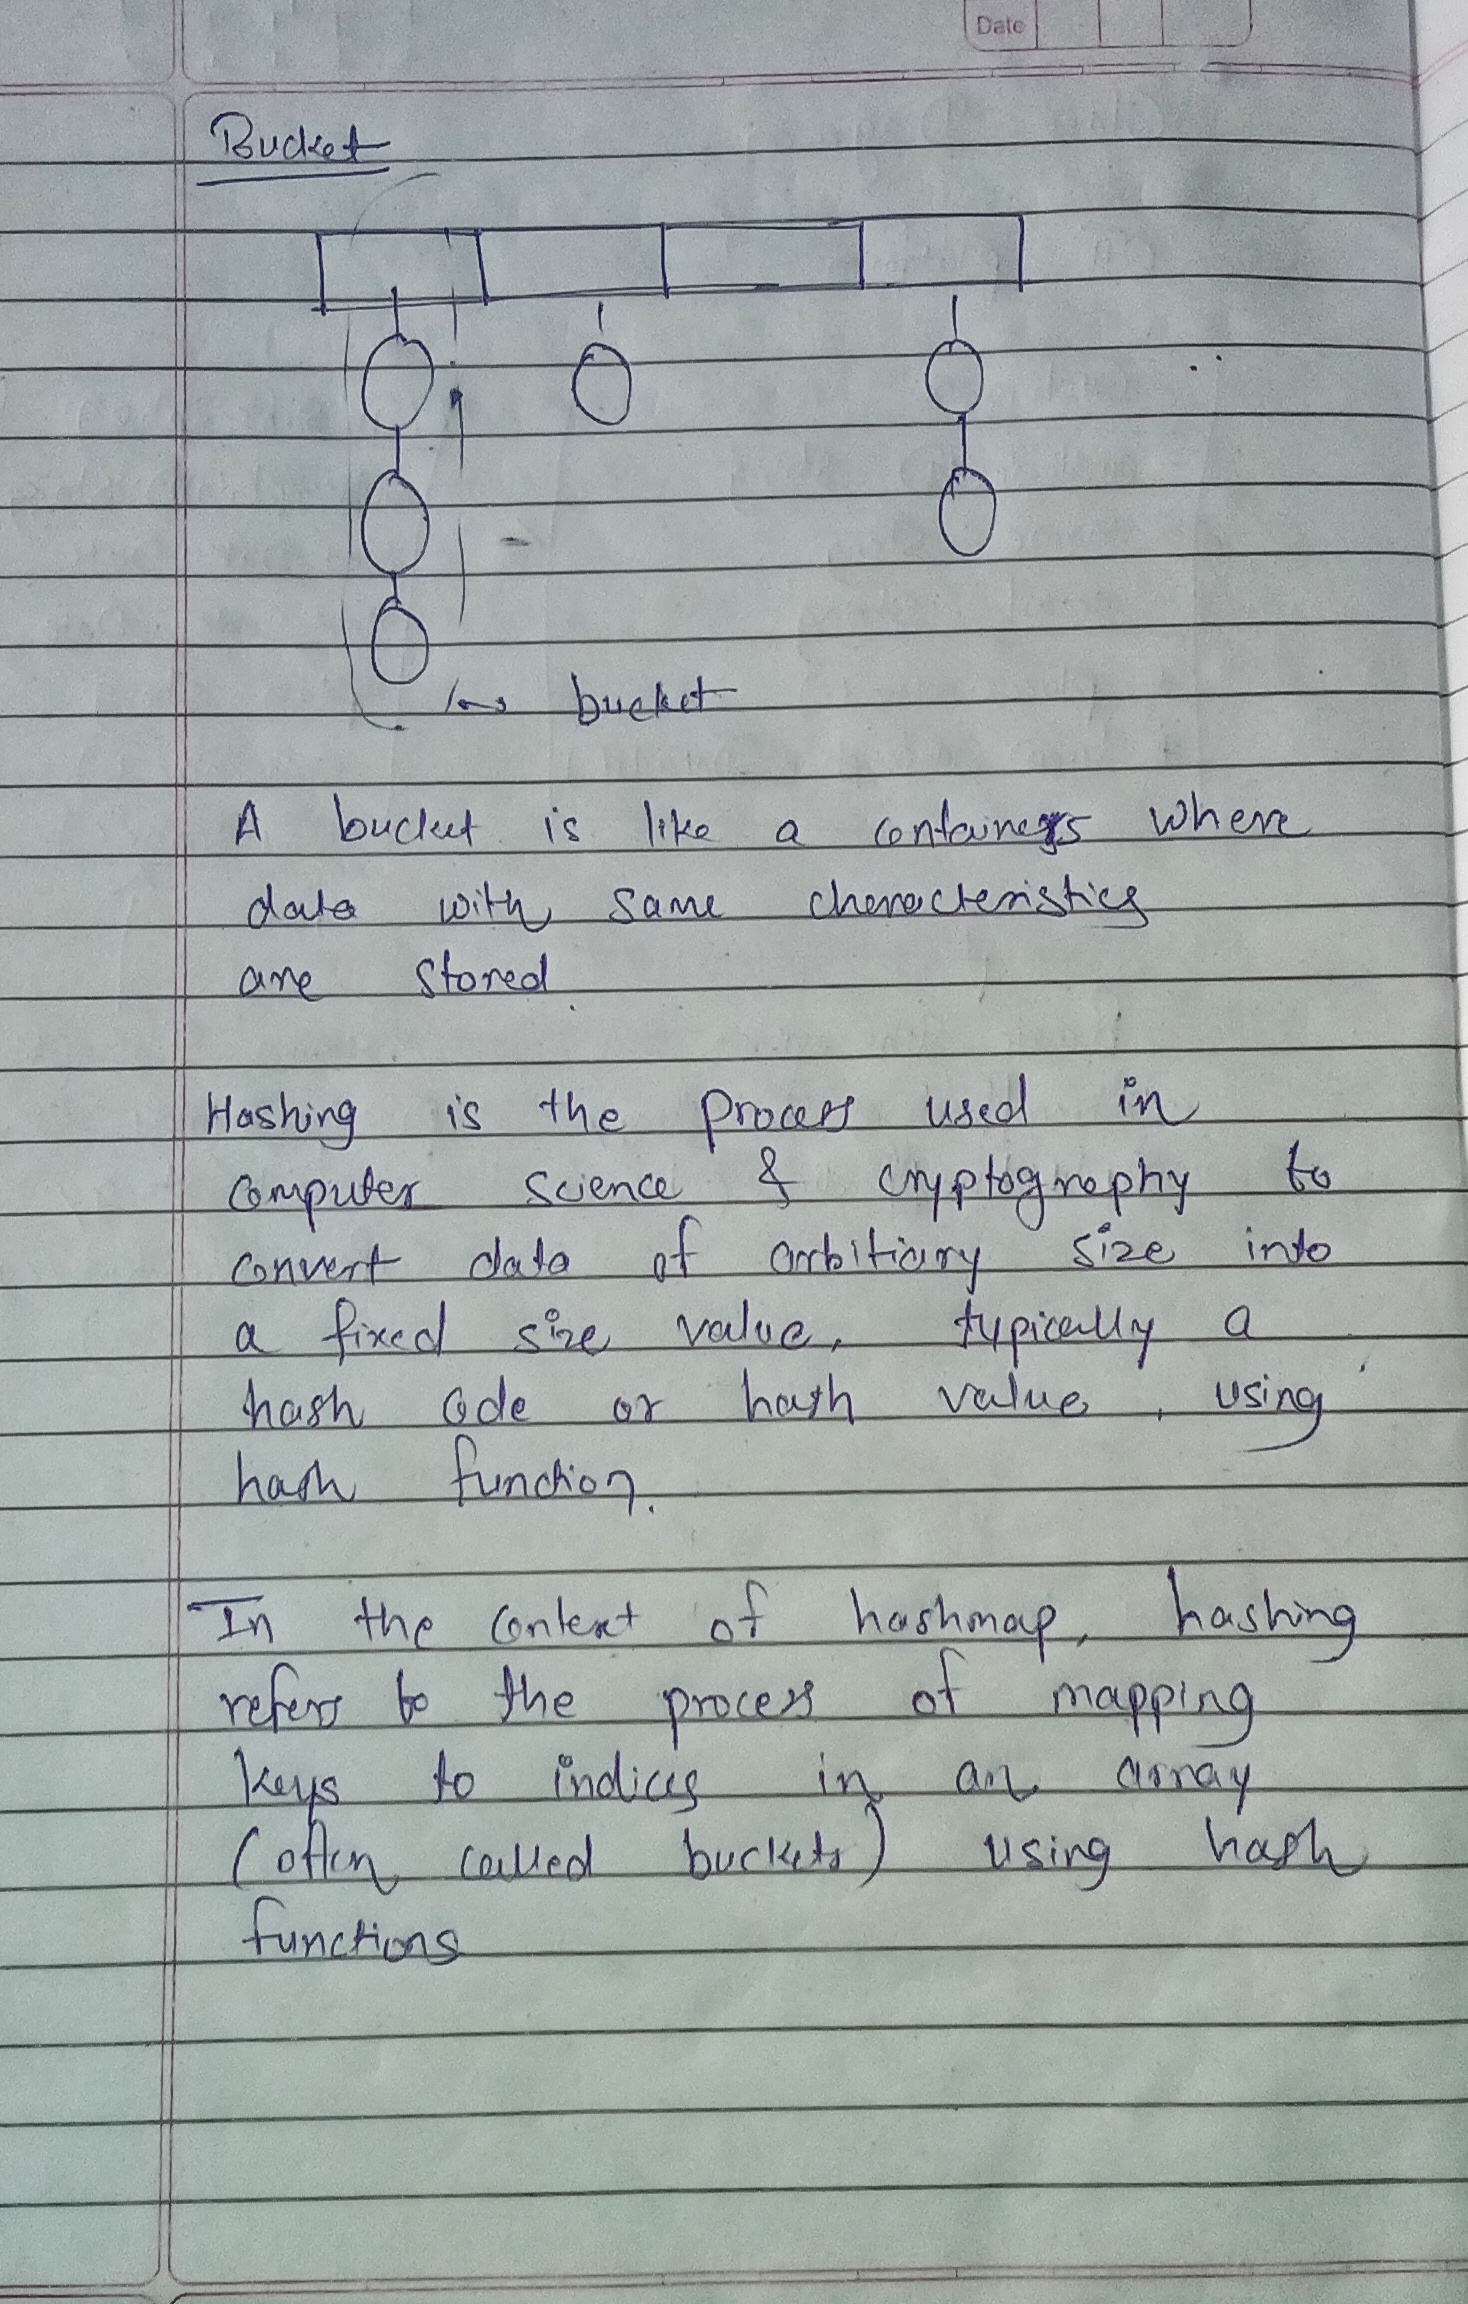 Date
Bucket
bucket
A bucket is like a containers where
data with same characteristics
are stored
Hashing is the process used in
computer science & cryptography to
convert data of arbitiary size into
a fixed size value, typically a
hash code or hash value, using
hash function.
In the context of hashmap, hashing
refers to the process of mapping
keys to indices in an array
(often called buckets) using hash
functions